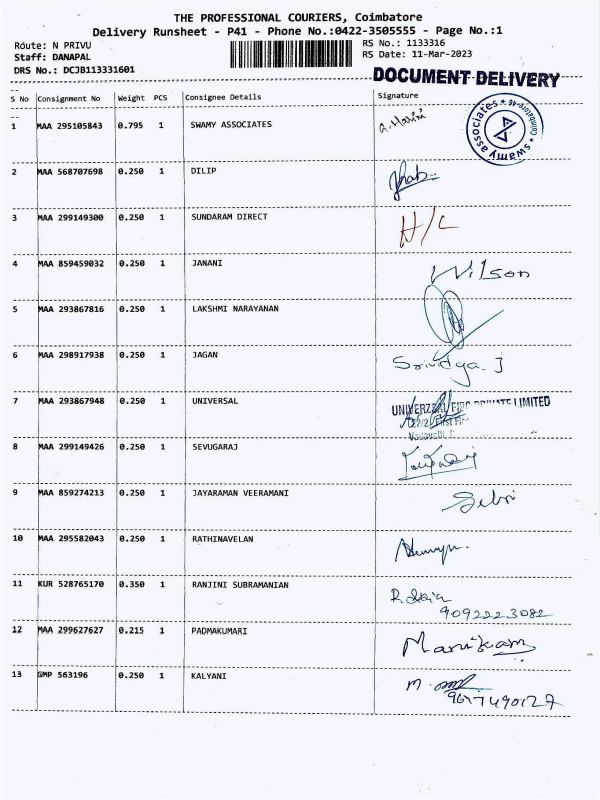 THE PROFESSIONAL COURIERS, Coimbatore
Delivery Runsheet - P41 - Phone No.:0422-3505555 - Page No.:1
Route: N PRIVU
RS No.: 1133316
Staff: DANAPAL
RS Date: 11-Mar-2023
DRS No.: DCJB113331601
DOCUMENT DELIVERY
S No Consignment No Weight PCS Consignee Details Signature
1 MAA 295105843 0.795 1 SWAMY ASSOCIATES a. Harini
swamy associates * coimbatore-46 *
2 MAA 568707698 0.250 1 DILIP
3 MAA 299149300 0.250 1 SUNDARAM DIRECT H/C
4 MAA 859459032 0.250 1 JANANI Wilson
5 MAA 293867816 0.250 1 LAKSHMI NARAYANAN
6 MAA 298917938 0.250 1 JAGAN Srividya. J
7 MAA 293867948 0.250 1 UNIVERSAL
PRIVATE LIMITED
8 MAA 299149426 0.250 1 SEVUGARAJ
9 MAA 859274213 0.250 1 JAYARAMAN VEERAMANI Selvi
10 MAA 295582043 0.250 1 RATHINAVELAN
11 KUR 528765170 0.350 1 RANJINI SUBRAMANIAN
9092223082
12 MAA 299627627 0.215 1 PADMAKUMARI Manikam
13 GMP 563196 0.250 1 KALYANI M.
9677490127